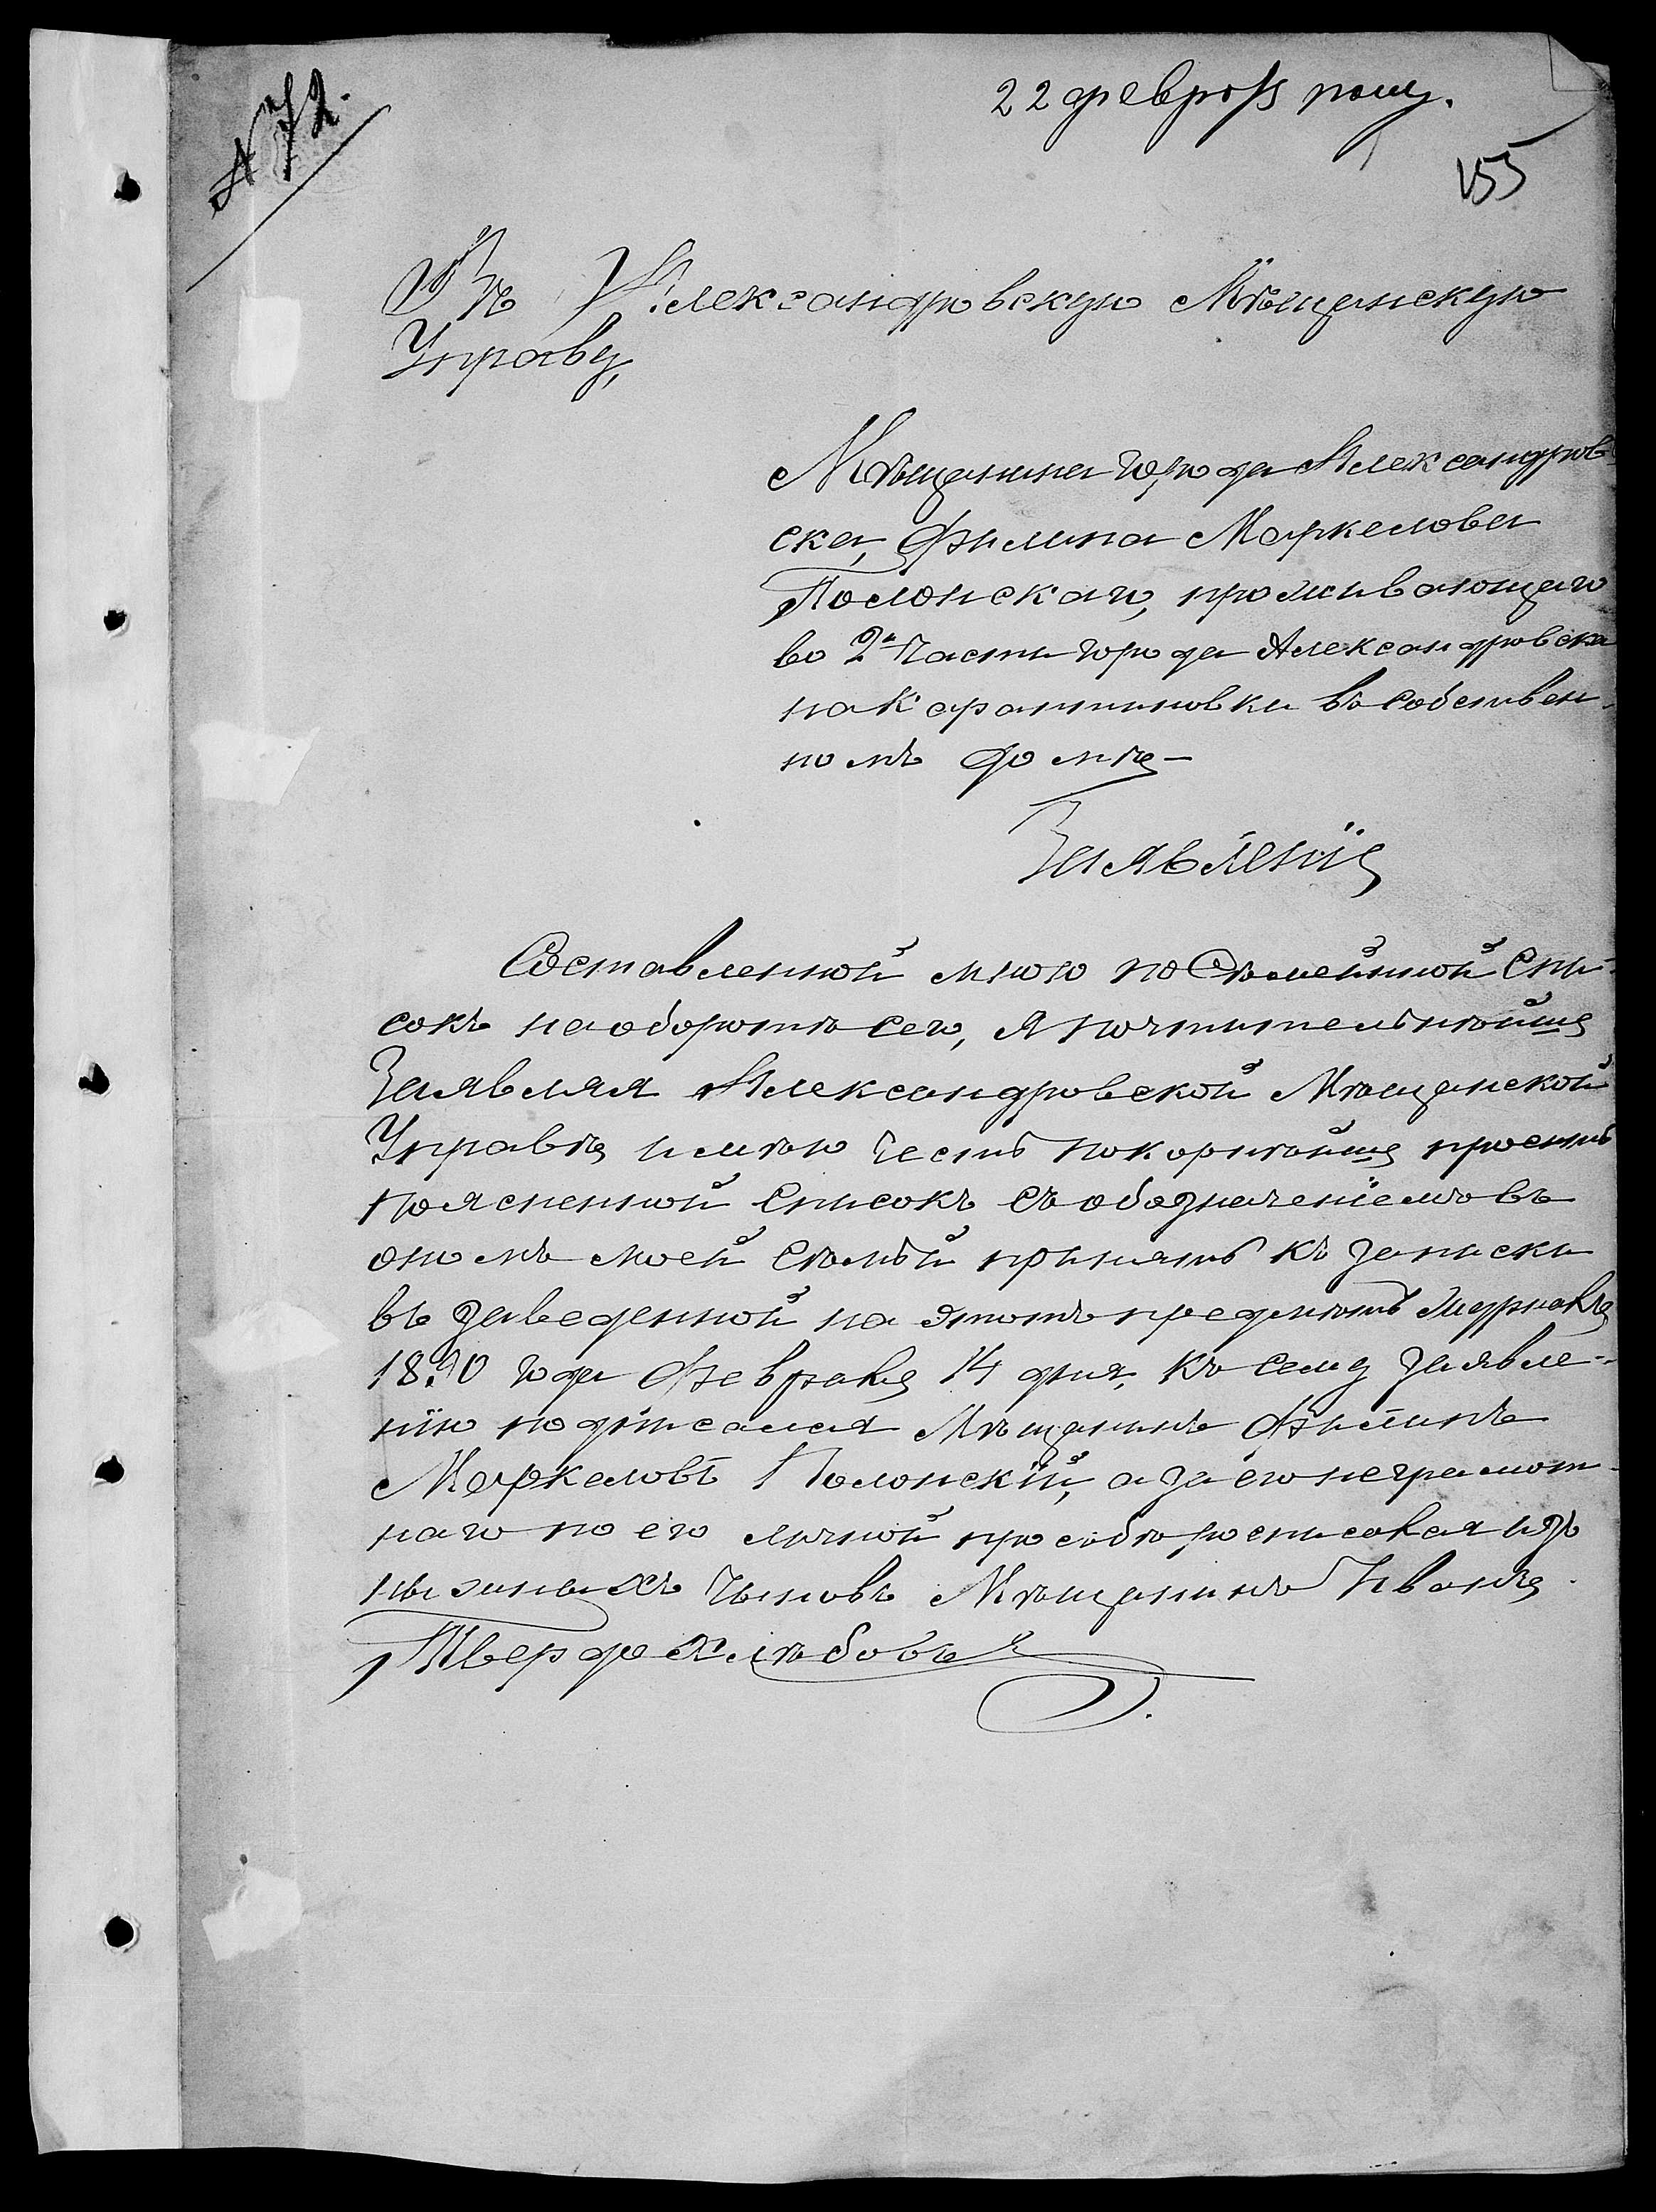 № 72.
22 февр
155
Въ Александровскую Мѣщанскую
Управу,
Мѣщанина города Александров-
ска, Филипа Маркелова
Полонскаго, проживающаго
во 2й части города Александровска
на Карантиновки въ собствен-
номъ домѣ –
Заявленіе
Составленной мною посѣмейной спи-
сокъ на оборотѣ сего, я почтительнѣйше
Заявляя Александровской Мѣщанской
Управѣ имѣю честь покорнѣйше просить
пояспенной списокъ съ обозначеніемъ въ
ономъ моей сѣмьй принять къ записки
въ заведенной на этотъ предмѣтъ журналъ
1890 года Февраля 14 дня, къ сему заявле-
нію подписался Мѣщанинъ Филипъ
Маркеловъ Полонскій, а за его неграмот-
наго по его личной прозбѣ росписался изъ
нижнихъ чиновъ Мѣщанинъ Иванъ
Твердохлѣбовъ